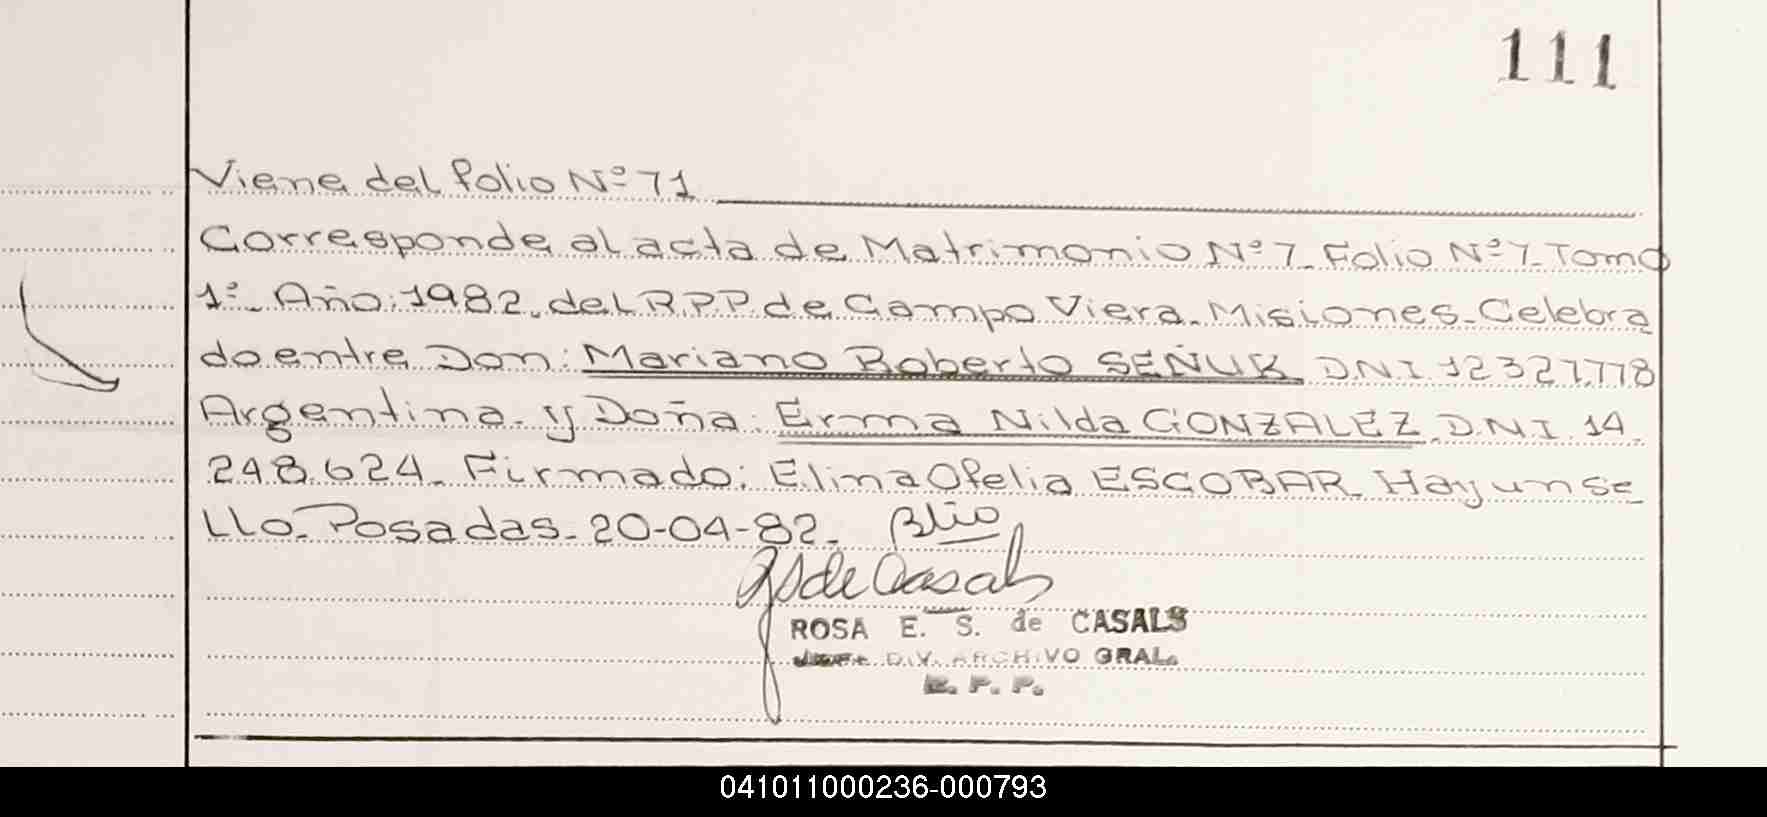 111
Viene del folio Nº 71
Corresponde al acta de Matrimonio Nº 7_ Folio Nº 7_ Tomo
1º_ Año: 1982_ del R.P.P. de Campo Viera_ Misiones_ Celebra
do entre Don: Mariano Roberto SEÑUK DNI 12327.778
Argentina_ y Doña: Erma Nilda GONZALEZ DNI 14.
248.624_ Firmado: Elina Ofelia ESCOBAR_ Hay un se
llo_ Posadas_ 20-04-82_
RS de Casals
ROSA E. S. de CASALS
DIV. ARCHIVO GRAL.
R. P. P.
041011000236-000793